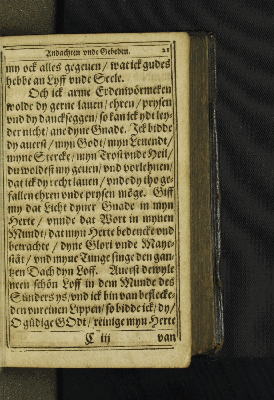 Andachten vnde Gebeden. 21
my ock alles gegeuen / wat ick gudes
hebbe an Lyff vnde Seele.
Och ick arme Erdenwörmeken
wolde dy gerne lauen / ehren / prysen
vnd dy danckseggen / so kan ick ydt ley-
der nicht / ane dyne Gnade. Ick bidde
dy auerst / myn Godt / myn Leuendt /
myne Stercke / myn Trost vnde Heil /
du woldest my geuen / vnd vorlehnen /
dat ick dy recht lauen / vnde dy tho ge-
fallen ehren vnde prysen möge. Giff
my dat Licht dyner Gnade in myn
Herte / vnnde dat Wort in mynen
Mundt / dat myn Herte bedencke vnd
betrachte / dyne Glori vnde Maye-
stät / vnd myne Tunge singe den gan-
tzen Dach dyn Loff. Auerst dewyle
neen schön Loff in dem Munde des
Sünders ys / vnd ick bin van beflecke-
den vnreinen Lippen / so bidde ick / dy /
O güdige GOdt / reinige myn Herte
C iij van